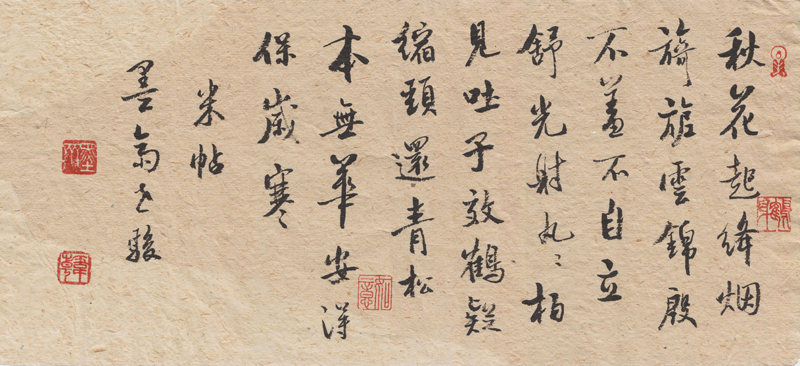 秋花起絳烟
旖旎雲錦殷
不羞不自立
舒光射丸〻柏
見吐子效鶴疑
縮頸還青松
本無華安得
保歲寒
米帖
墨 駿
如意